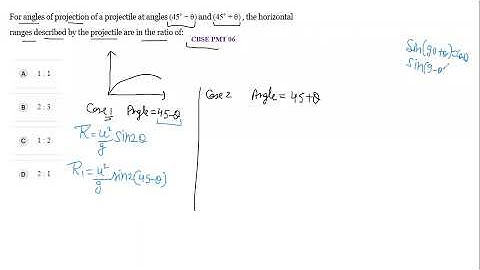 For angles of projection of a projectile at angles (45° − θ) and (45° + θ) , the horizontal
ranges described by the projectile are in the ratio of: CBSE PMT 06
A 1 : 1
B 2 : 3
C 1 : 2
D 2 : 1
Case 1 Angle = 45-θ
R = u²/g sin2θ
R₁ = u²/g sin2(45-θ)
Case 2 Angle = 45+θ
sin(90+θ)=cosθ
sin(9-θ